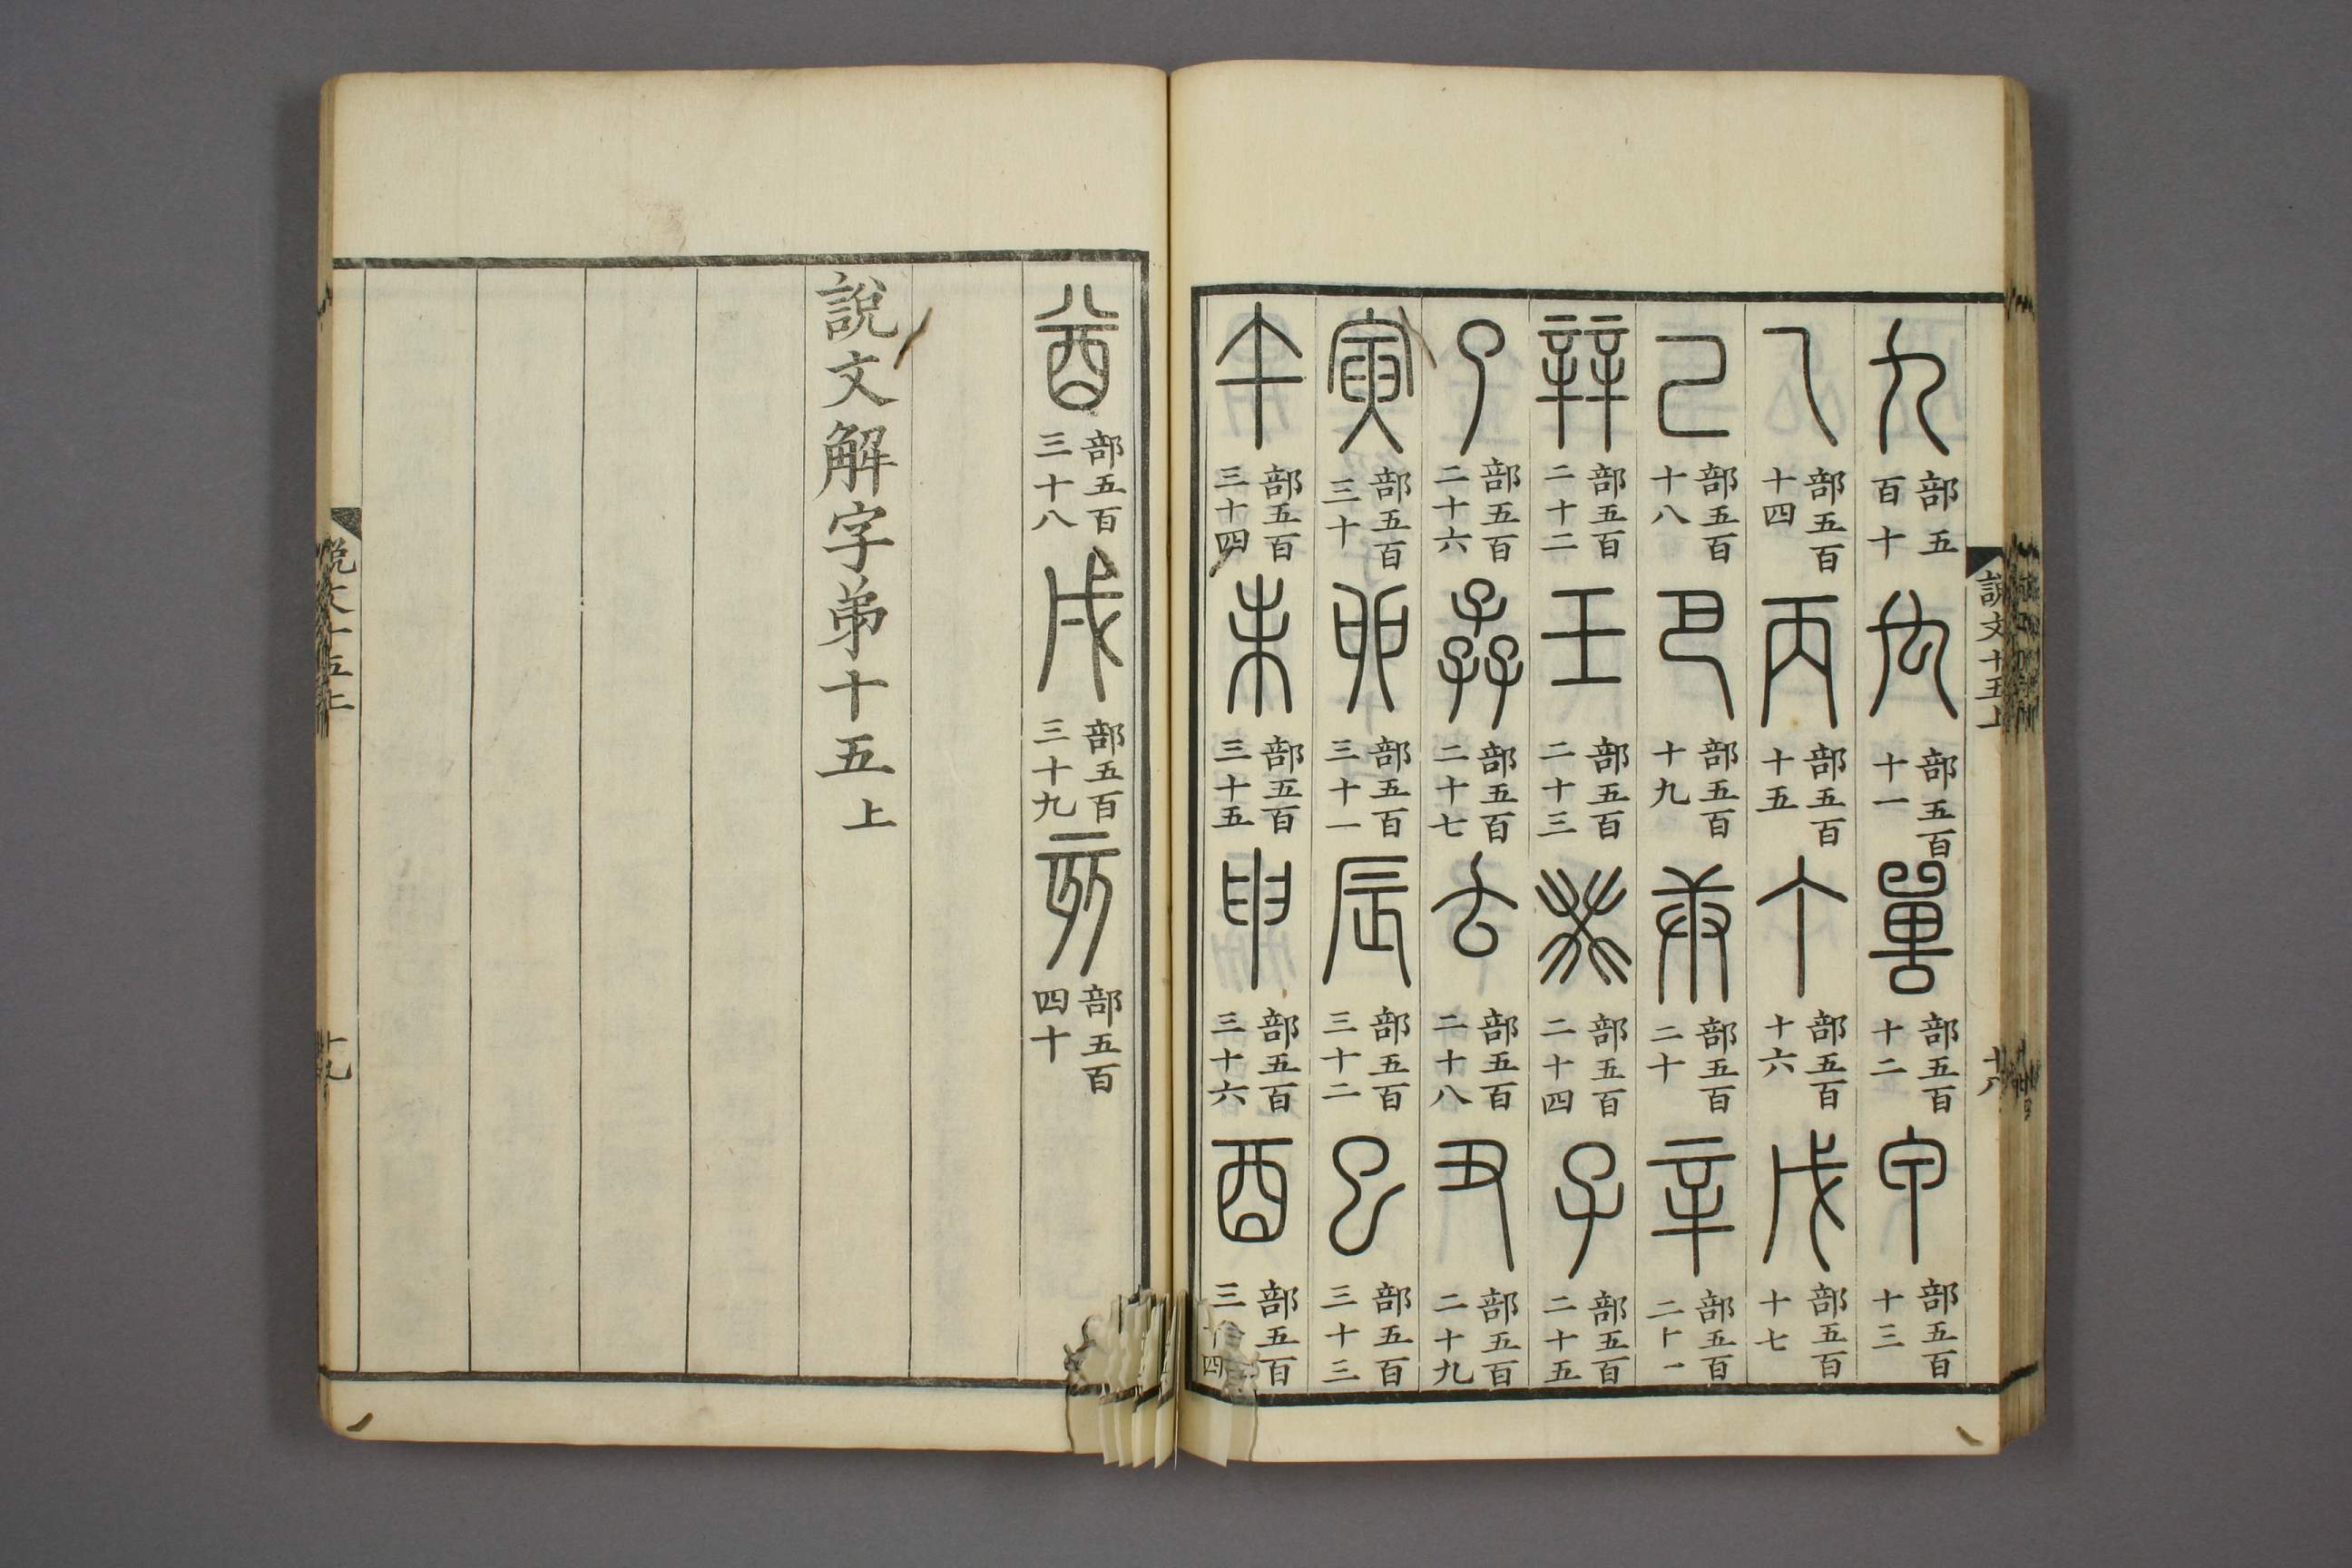 說文十五上 十八
九 部五百十 禸 部五百十一 嘼 部五百十二 甲 部五百十三
乙 部五百十四 丙 部五百十五 丁 部五百十六 戊 部五百十七
己 部五百十八 巴 部五百十九 庚 部五百二十 辛 部五百二十一
辡 部五百二十二 壬 部五百二十三 癸 部五百二十四 子 部五百二十五
了 部五百二十六 孨 部五百二十七 𠫓 部五百二十八 丑 部五百二十九
寅 部五百三十 卯 部五百三十一 辰 部五百三十二 巳 部五百三十三
午 部五百三十四 未 部五百三十五 申 部五百三十六 酉 部五百三
酋 部五百三十八 戌 部五百三十九 亥 部五百四十
說文解字弟十五上
說文十五上 十九